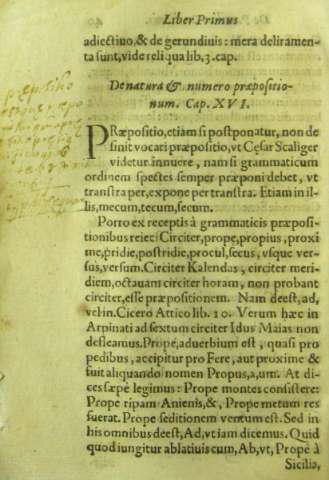 40
Liber Primus
adiectiuo,& de gerundiuis: mera deliramen-
ta sunt, vide reliqua lib.3.cap.
De natura & numero præpositio-
num. Cap. XVI.
PRæpositio, etiam si postponatur, non de
sinit vocari præpositio, vt Cęsar Scaliger
videtur innuere, nam si grammaticum
ordinem spectes semper præponi debet, vt
transtra per, expone per transtra. Etiam in il-
lis, mecum, tecum, secum.
Porro ex receptis à grammaticis præposi-
tionibus reieci Circiter, prope, propius, proxi
mè, pridie, postridie, procul, secus, vsque ver-
sus, versum. Circiter Kalendas, circiter meri-
diem, octauam circiter horam, non probant
circiter, esse præpositionem. Nam deest, ad,
vel in. Cicero Attico lib. 10. Verum hæc in
Arpinati ad sextum circiter Idus Maias non
defleamus. Prope, aduerbium est, quasi pro
pedibus, accipitur pro Fere, aut proxime &
fuit aliquando nomen Propus, a, um. At di-
ces sæpè legimus: Prope montes consistere:
Prope ripam Anienis, &, Prope metum res
fuerat. Prope seditionem ventum est. Sed in
his omnibus deest, Ad, vt iam dicemus. Quid
quod iungitur ablatiuis cum, Ab, vt, Prope à
Sicilia,